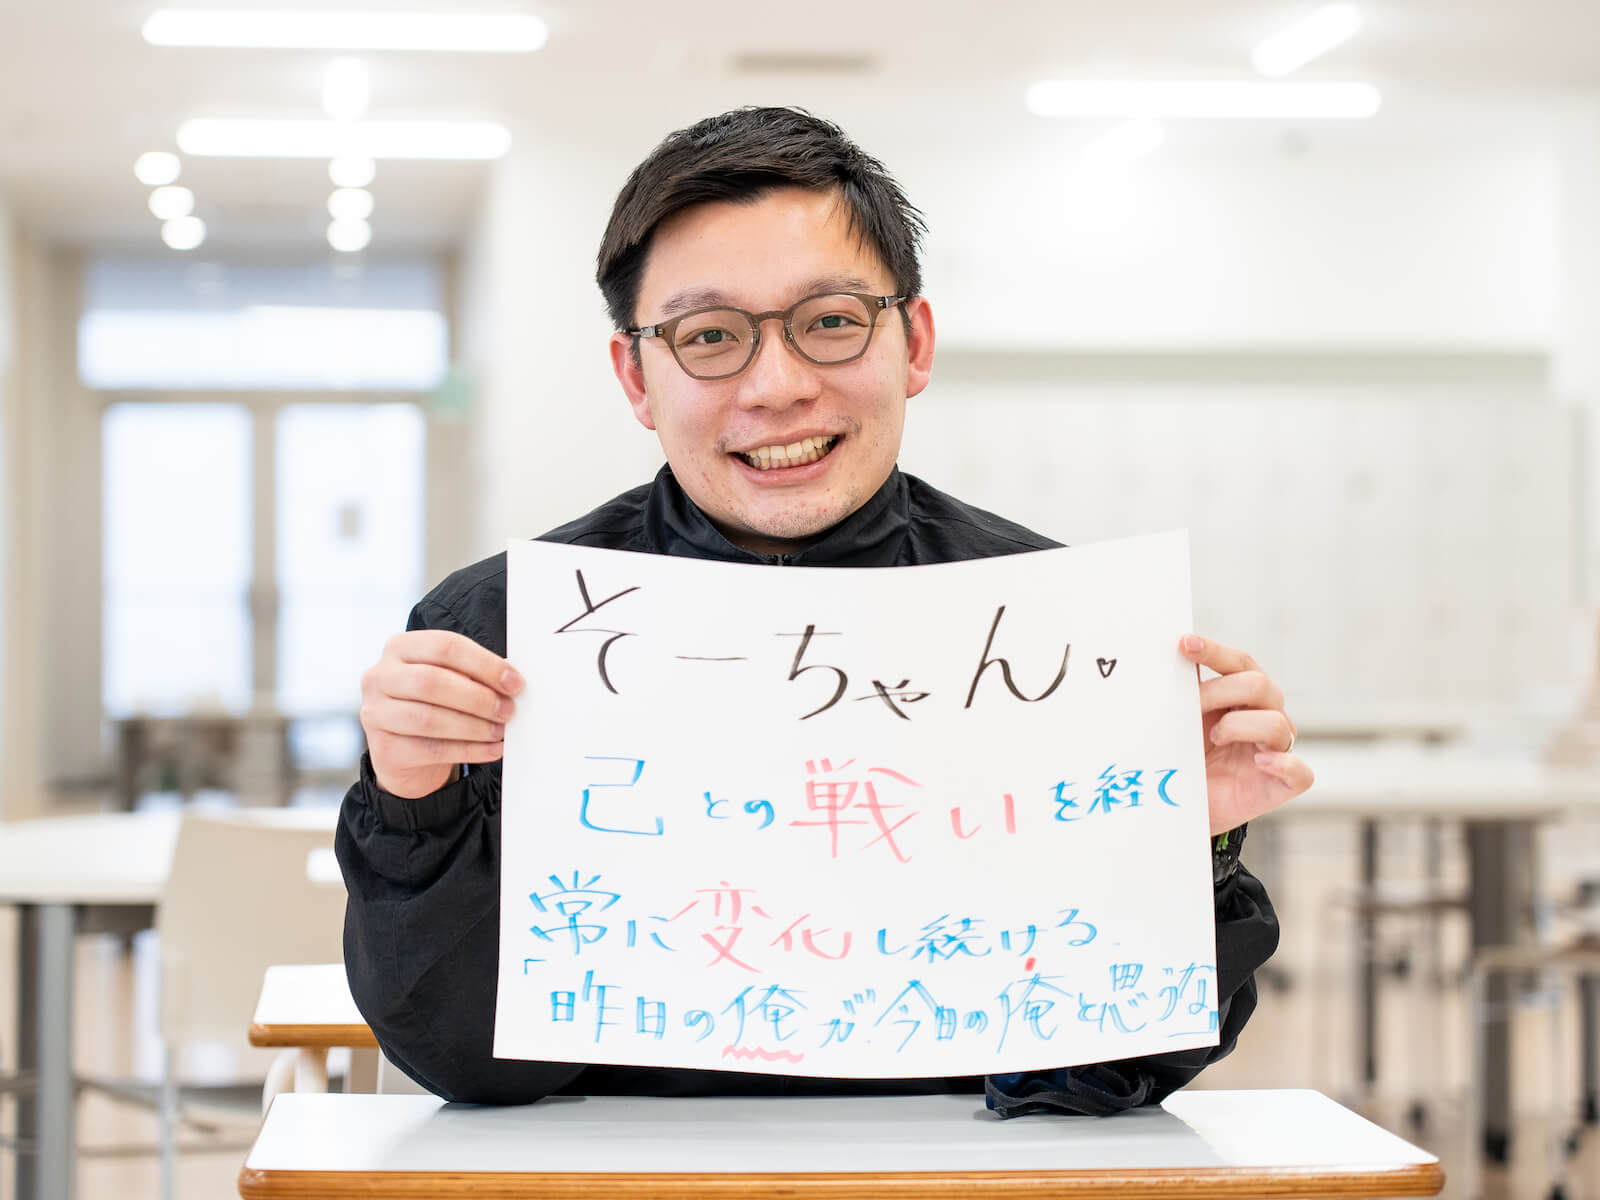 そーちゃん。
己との戦いを経て
常に変化し続ける。
「昨日の俺が今日の俺と思うな」